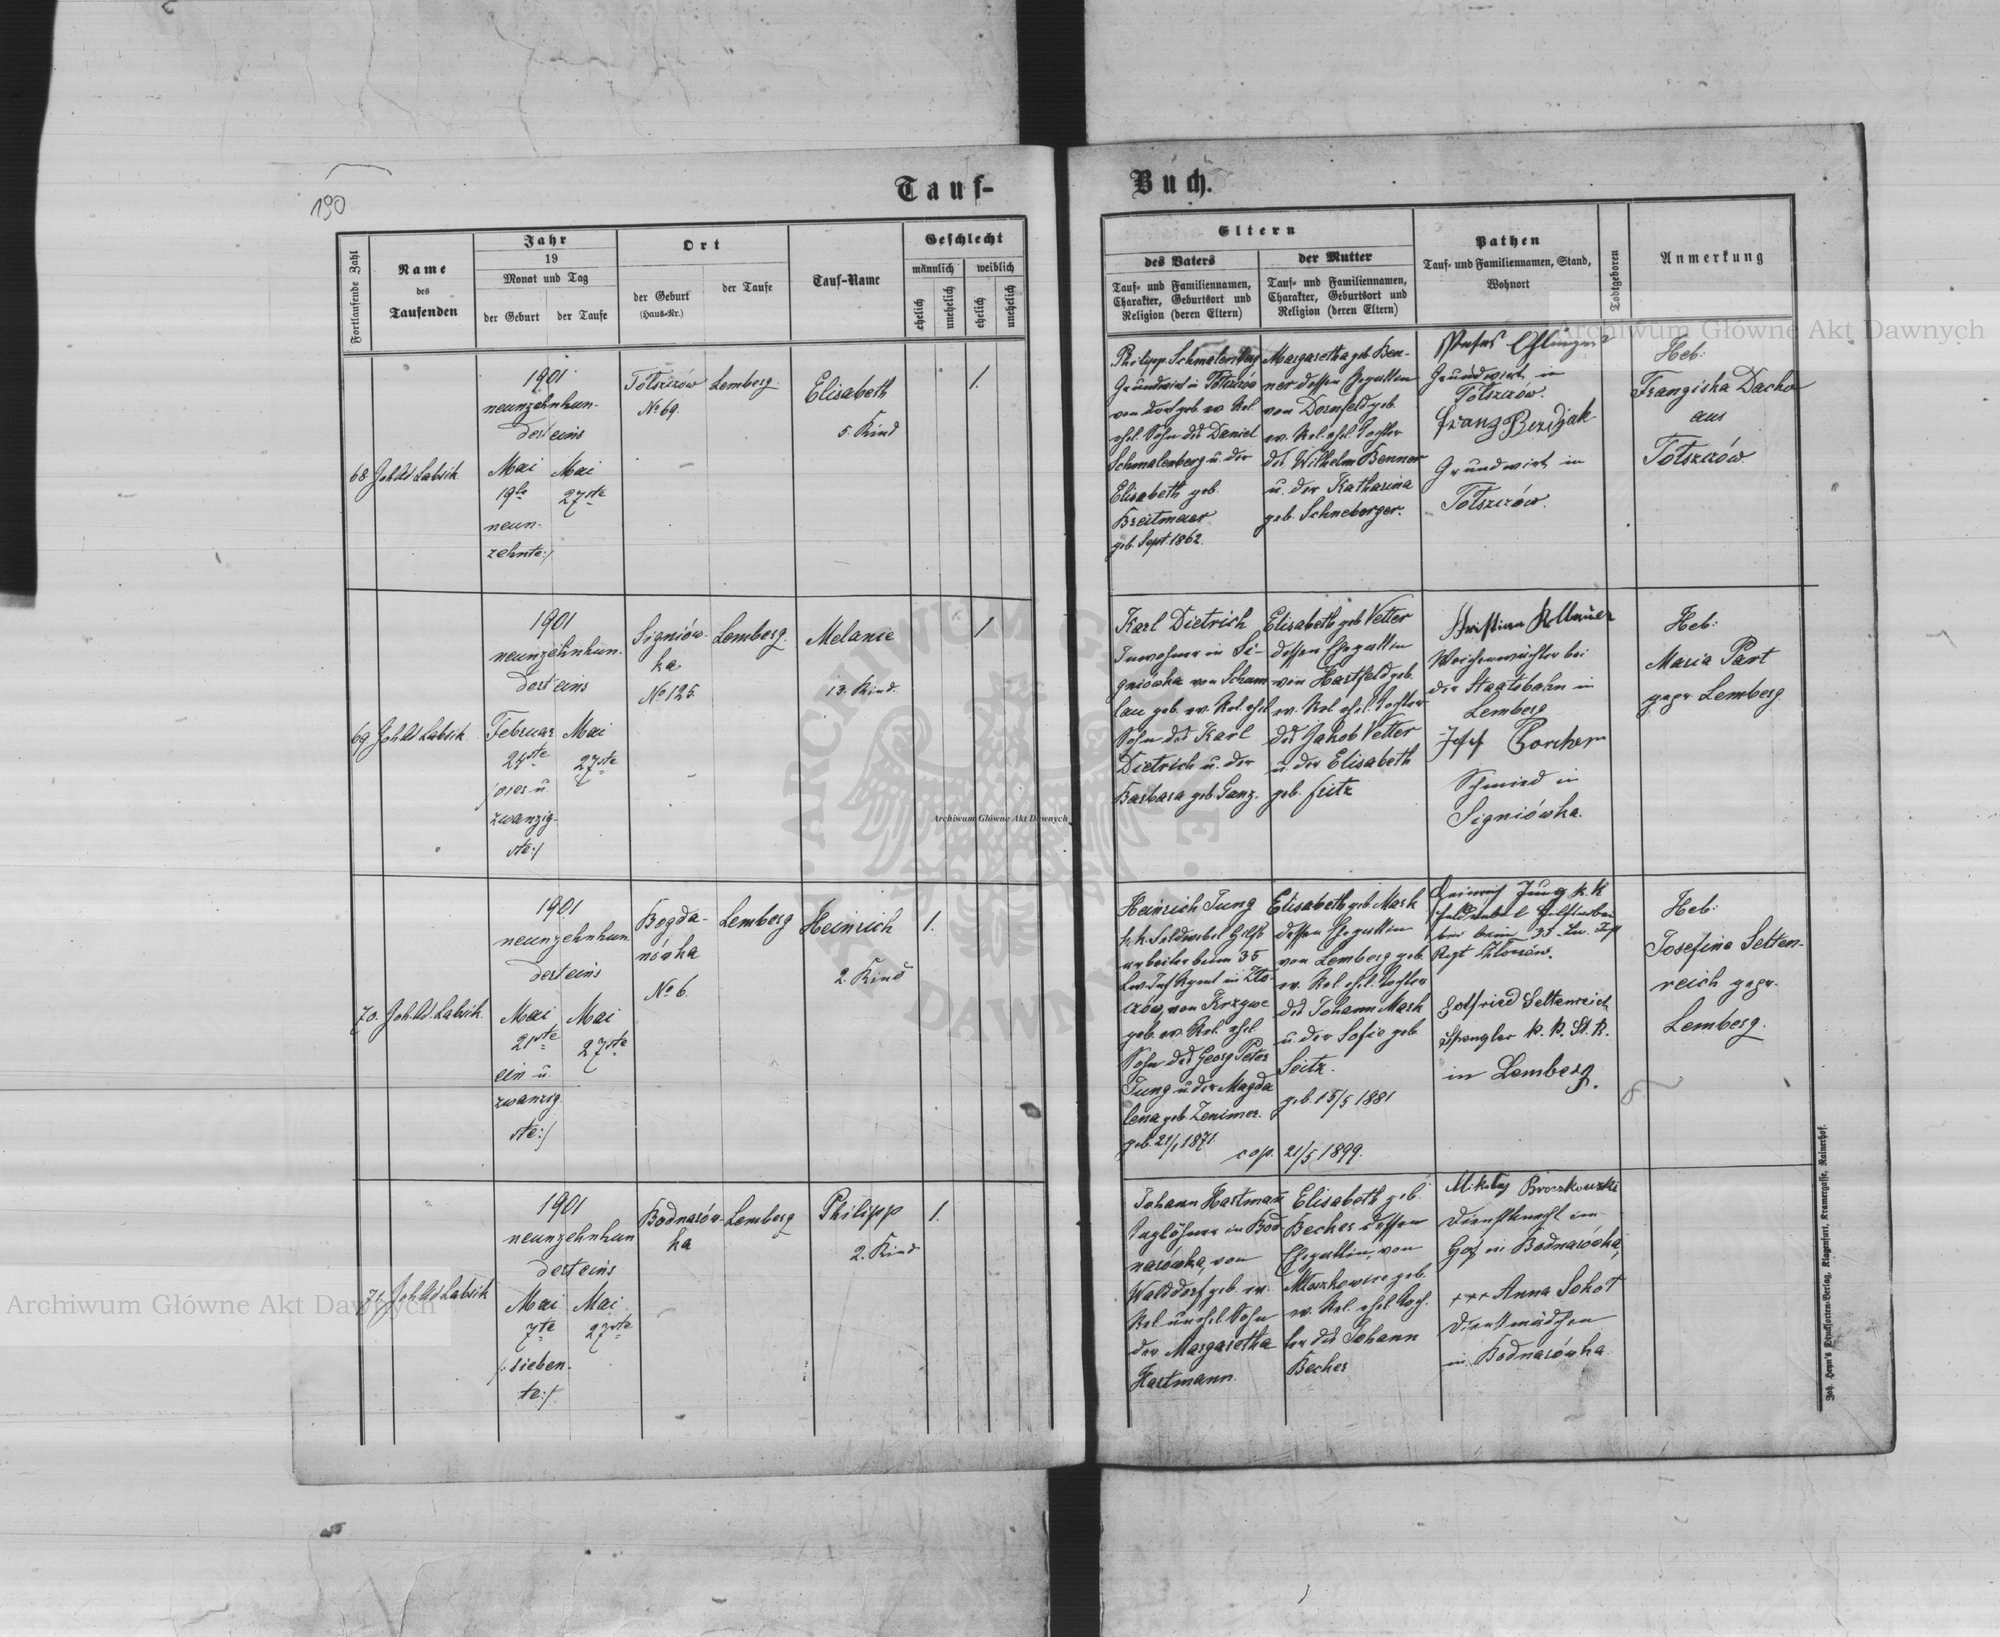 190
Tauf-
Buch.
Fortlaufende Zahl
Name
des
Taufenden
Jahr
19
Monat und Tag
der Geburt
der Taufe
Ort
der Geburt
(Haus-Nr.)
der Taufe
Tauf-Name
Geschlecht
männlich
weiblich
ehelich
unehelich
ehelich
unehelich
Eltern
des Vaters
Tauf- und Familiennamen,
Charakter, Geburtsort und
Religion (deren Eltern)
der Mutter
Tauf- und Familiennamen,
Charakter, Geburtsort und
Religion (deren Eltern)
Pathen
Tauf- und Familiennamen, Stand,
Wohnort
Todtgeboren
Anmerkung
68
1901
neunzehnhun-
dert eins
Mai
19te
neun-
zehnte:/
Mai
27ste
Tołszczów
No 69.
Lemberg
Elisabeth
5. Kind
1.
Philipp Schmalenberg
Grundwirt in Tołszczów
von dort geb. ev. Rel
ehel. Sohn des Daniel
Schmalenberg u. der
Elisabeth geb.
Breitmeier
geb. Sept. 1862.
Margaretha geb. Ben-
ner dessen Ehegattin
von Dornfeld geb.
ev. Rel. ehel. Tochter
des Wilhelm Benner
u. der Katharina
geb. Schneberger.
Grundwirt in
Tołszczów.
Franz
Grundwirt in
Tołszczów.
Heb:
Franziska
aus
Tołszczów.
69
1901
neunzehnhun-
dert eins
Februar
24ste
/vier u.
zwanzig-
ste:/
Mai
27ste
Signiów-
ka
No 125.
Lemberg.
Melanie
13. Kind.
1
Karl Dietrich
Inwohner in Si-
gniówka von Schum-
lau geb. ev. Rel. ehel
Sohn des Karl
Dietrich u. der
Barbara geb. Ganz.
Elisabeth geb Vetter
dessen Ehegattin
von Hartfeld geb.
ev. Rel. ehel. Tochter
des Jakob Vetter
u der Elisabeth
geb. Fritz
Christian Kollmer
Weichenwächter bei
der Staatsbahn in
Lemberg
Schmied in
Signiówka.
Heb:
Maria Part
gepr. Lemberg.
70.
1901
neunzehnhun
dert eins
Mai
21ste
ein u.
zwanzig-
ste:/
Mai
27ste
Bogda-
nówka
No 6.
Lemberg
Heinrich
2. Kind
1.
Heinrich Jung
k. k. Feldwebel Hilfs
arbeiter beim 35
geb. ev. Rel. ehel
Sohn des Georg Peter
Jung u. der Magda
lena geb.
geb. 21/1 1871
Elisabeth geb Mark
dessen Ehegattin
von Lemberg geb.
ev. Rel. ehel. Tochter
des Johann Mark
u. der Sofie geb
Seitz.
geb. 15/5 1881
cop. 21/5 1899.
Heinrich Jung k. k.
Gottfried Settenreich
Spengler k. k. St. B.
in Lemberg.
Heb:
Josefine Setten-
reich gepr.
Lemberg.
71.
1901
neunzehnhun
dert eins
Mai
7te
/:sieben-
te:/
Mai
27ste
Bodnarów-
ka
Lemberg
Philipp
2. Kind
1.
Johann Hartmann
Taglöhner in Bod-
narówka, von
Walddorf geb. ev.
Rel. unehel. Sohn
der Margaretha
Hartmann.
Elisabeth geb.
Becher dessen
Ehegattin, von
geb.
ev. Rel. ehel. Toch-
ter des Johann
Becher
Mikołaj
Dienstknecht am
Hof in Bodnarówka,
+++ Anna Sokoł
Dienstmädchen
in Bodnarówka.
Joh. Heyn's Drucksorten-Verlag, Klagenfurt, Kramergasse, Rainerhof.
Archiwum Główne Akt Dawnych
Archiwum Główne Akt Dawnych
Archiwum Główne Akt Dawnych